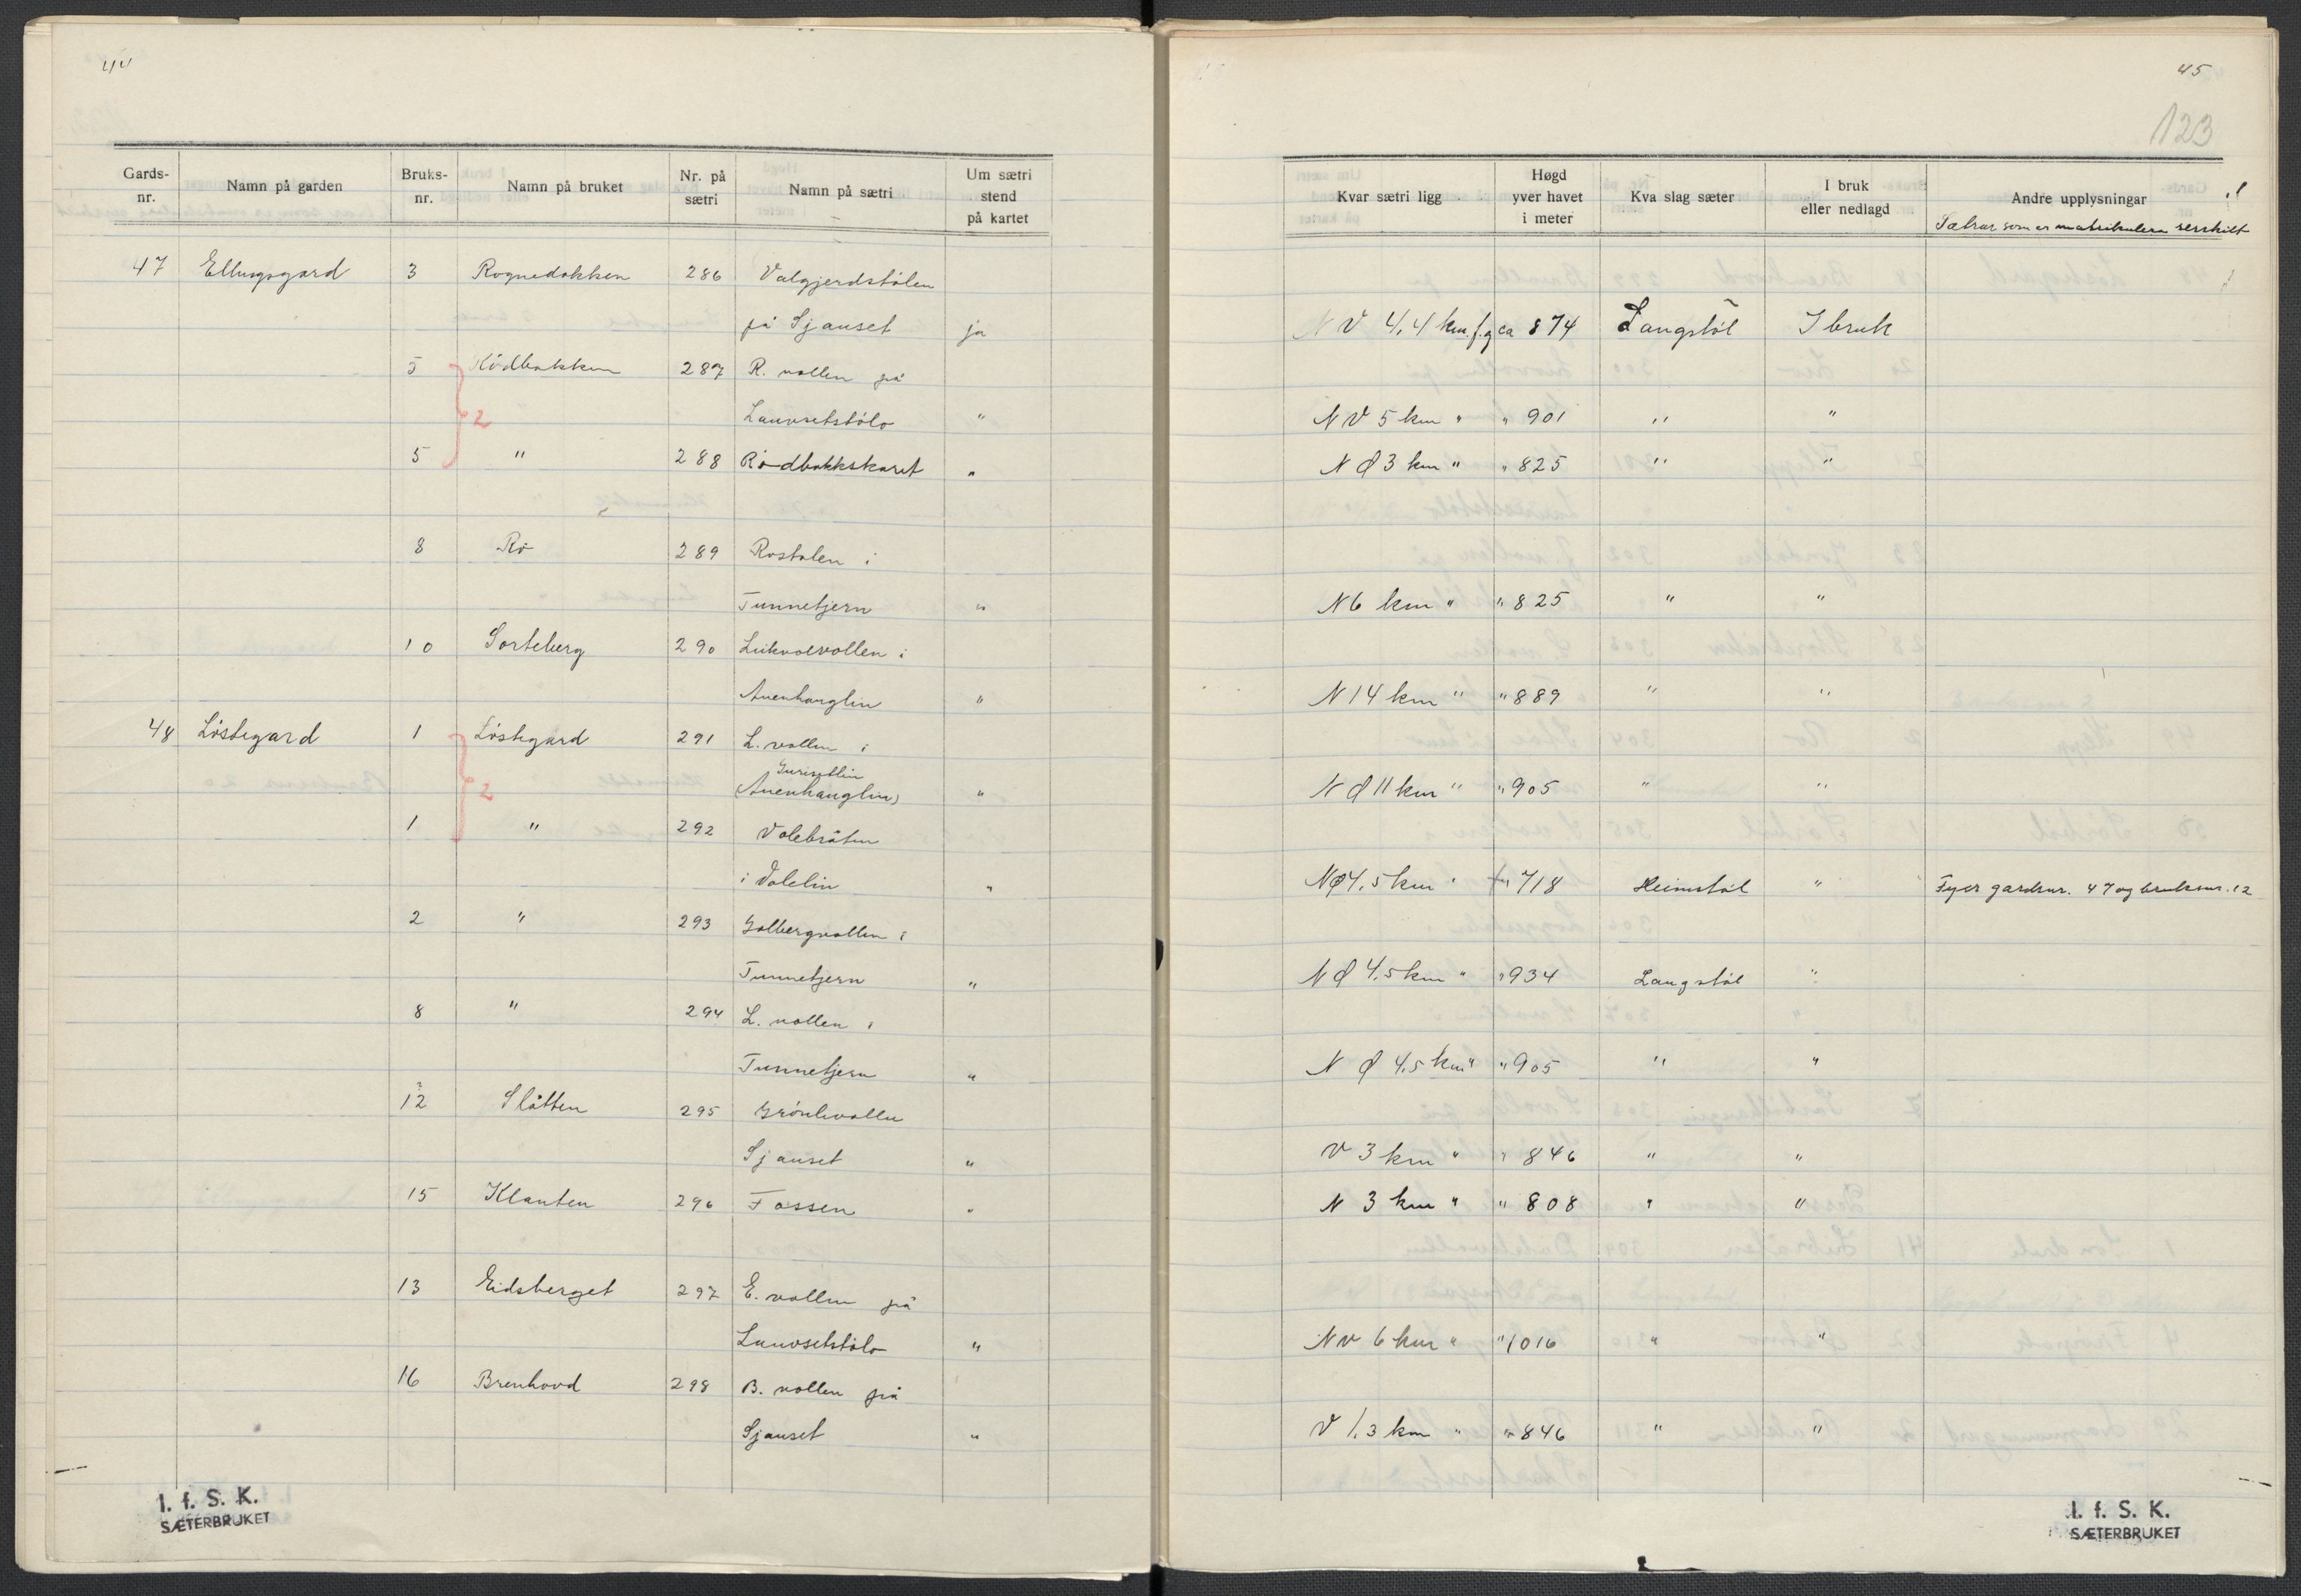 44
Gards-nr. Namn på garden Bruks-nr. Namn på bruket Nr. på sætri Namn på sætri Um sætri stend på kartet
47 Ellingsgard 3 Rognedokken 286 Valgjerdstölen
på Sjauset ja
5 Rödbakken 287 R. vollen på
2 Lauvsetstölo "
5 " 288 Rödbakkskaret "
8 Rö 289 Rostolen i
Tunnetjern "
10 Sorteberg 290 Leikvolvollen i
Auenhauglin "
48 Löstegard 1 Löstegard 291 L. vollen i
Gurisetlin
2 (Auenhauglin) "
1 " 292 Volebråten
i Volelin "
2 " 293 Golbergvollen i
Tunnetjern "
8 " 294 L. vollen i
Tunnetjern "
12 Slåtten 295 Grönlivollen
Sjauset "
15 Klanten 296 Fossen "
13 Eidsberget 297 E. vollen på
Lauvsetstölo "
16 Brenhovd 298 B. vollen på
Sjauset "
I. f. S. K.
SÆTERBRUKET
45
123
Kvar sætri ligg Høgd yver havet i meter Kva slag sæter I bruk eller nedlagd Andre upplysningar
Sætrar som er matrikulera serskilt
NV 4,4 km. f. g ca 874 Langstöl I bruk
NV 5 km " " 901 " "
NØ 3 km " " 825 " "
N 6 km " " 825 " "
N 14 km " " 889 " "
NØ 11 km " " 905 " "
NØ 4,5 km " 718 Heimstöl " Fyer gardsnr. 47 og bruksnr. 12
NØ 4,5 km " " 934 Langstöl "
NØ 4,5 km " " 905 " "
V 3 km " " 846 " "
N 3 km " " 808 " "
NV 6 km " " 1016 " "
V 1,3 km " " 846 " "
I. f. S. K.
SÆTERBRUKET